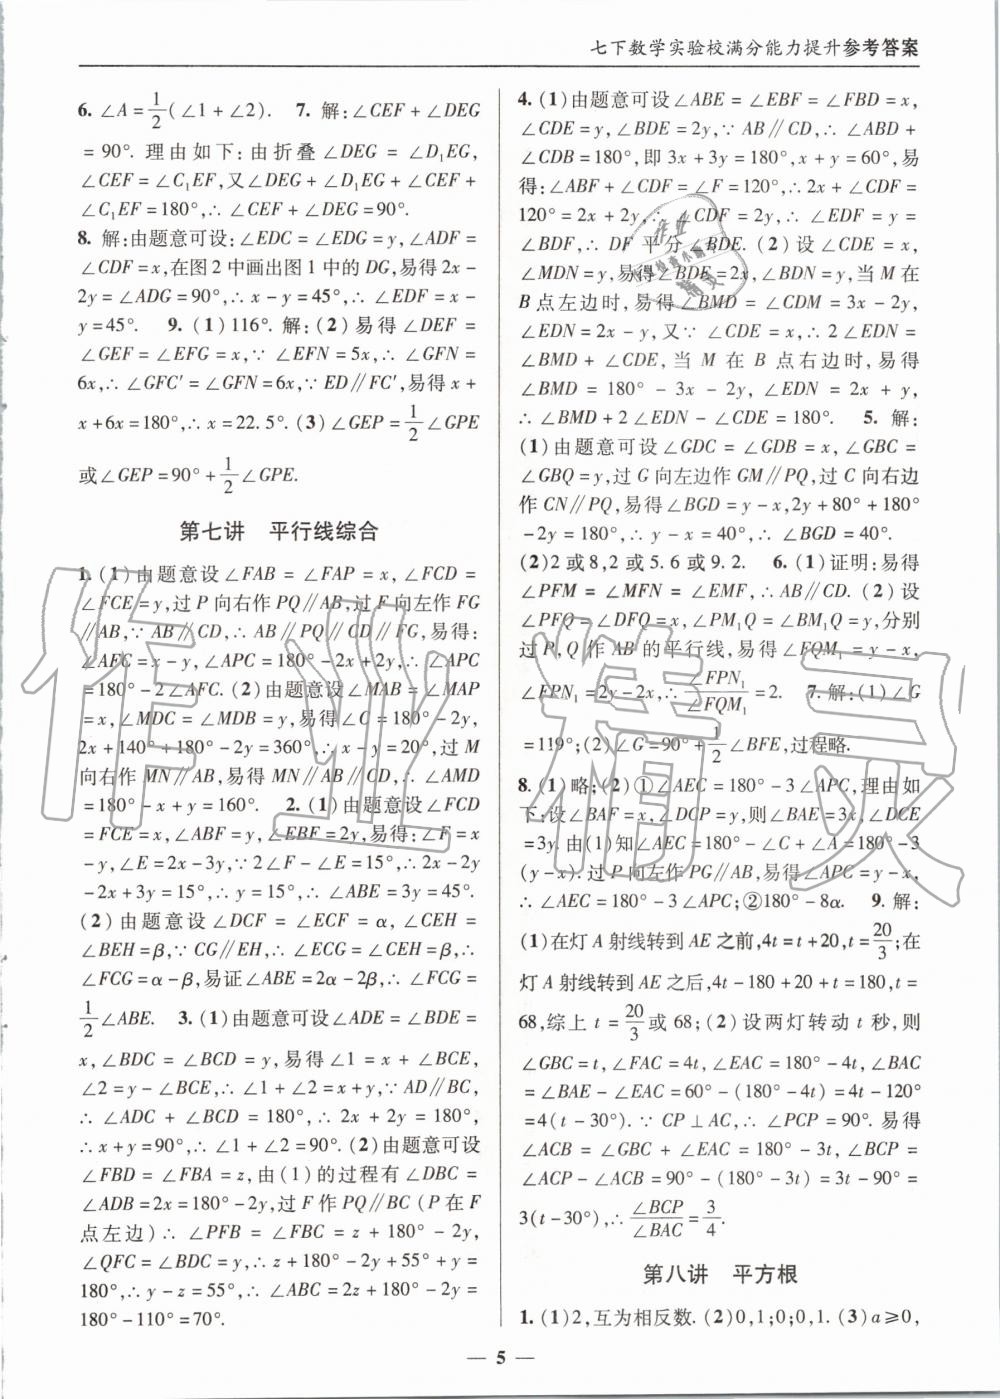 七下数学实验校满分能力提升参考答案
6. ∠A=1/2(∠1+∠2). 7. 解:∠CEF+∠DEG
=90°. 理由如下:由折叠∠DEG=∠D₁EG,
∠CEF=∠C₁EF,又∠DEG+∠D₁EG+∠CEF+
∠C₁EF=180°,∴∠CEF+∠DEG=90°.
8. 解:由题意可设:∠EDC=∠EDG=y,∠ADF=
∠CDF=x,在图2中画出图1中的DG,易得2x-
2y=∠ADG=90°,∴x-y=45°,∴∠EDF=x-
y=45°. 9. (1)116°. 解:(2)易得∠DEF=
∠GEF=∠EFG=x,∵∠EFN=5x,∴∠GFN=
6x,∴∠GFC′=∠GFN=6x,∵ED∥FC′,易得x+
x+6x=180°,∴x=22.5°. (3)∠GEP=1/2∠GPE
或∠GEP=90°+1/2∠GPE.
第七讲 平行线综合
1. (1)由题意设∠FAB=∠FAP=x,∠FCD=
∠FCE=y,过P向右作PQ∥AB,过F向左作FG
∥AB,∵AB∥CD,∴AB∥PQ∥CD∥FG,易得:
∠AFC=x-y,∠APC=180°-2x+2y,∴∠APC
=180°-2∠AFC. (2)由题意设∠MAB=∠MAP
=x,∠MDC=∠MDB=y,易得∠C=180°-2y,
2x+140°+180°-2y=360°,∴x-y=20°,过M
向右作MN∥AB,易得MN∥AB∥CD,∴∠AMD
=180°-x+y=160°. 2. (1)由题意设∠FCD
=FCE=x,∠ABF=y,∠EBF=2y,易得:∠F=x
-y,∠E=2x-3y,∵2∠F-∠E=15°,∴2x-2y
-2x+3y=15°,∴y=15°,∴∠ABE=3y=45°.
(2)由题意设∠DCF=∠ECF=α,∠CEH=
∠BEH=β,∵CG∥EH,∴∠ECG=∠CEH=β,∴
∠FCG=α-β,易证∠ABE=2α-2β,∴∠FCG=
1/2∠ABE. 3. (1)由题意可设∠ADE=∠BDE=
x,∠BDC=∠BCD=y,易得∠1=x+∠BCE,
∠2=y-∠BCE,∴∠1+∠2=x+y,∵AD∥BC,
∴∠ADC+∠BCD=180°,∴2x+2y=180°,
∴x+y=90°,∴∠1+∠2=90°. (2)由题意可设
∠FBD=∠FBA=z,由(1)的过程有∠DBC=
∠ADB=2x=180°-2y,过F作PQ∥BC(P在F
点左边)∴∠PFB=∠FBC=z+180°-2y,
∠QFC=∠BFC=y,∴z+180°-2y+55°+y=
180°,∴y-z=55°,∴∠ABC=2z+180°-2y=
180°-110°=70°.
4. (1)由题意可设∠ABE=∠EBF=∠FBD=x,
∠CDE=y,∠BDE=2y,∵AB∥CD,∴∠ABD+
∠CDB=180°,即3x+3y=180°,x+y=60°,易
得:∠ABF+∠CDF=∠F=120°,∴2x+∠CDF=
120°=2x+2y,∴∠CDF=2y,∴∠CDF=
∠BDF,∴DF平分∠BDE. (2)设∠CDE=x,
∠MDN=y,易得∠BDE=2x,∠BDN=y,当M在
B点左边时,易得∠BMD=∠CDM=3x-2y,
∠EDN=2x-y,又∵∠CDE=x,∴2∠EDN=
∠BMD+∠CDE,当M在B点右边时,易得
∠BMD=180°-3x-2y,∠EDN=2x+y,
∴∠BMD+2∠EDN-∠CDE=180°. 5. 解:
(1)由题意可设∠GDC=∠GDB=x,∠GBC=
∠GBQ=y,过G向左边作GM∥PQ,过C向右边
作CN∥PQ,易得∠BGD=y-x,2y+80°+180°
-2x=180°,∴y-x=40°,∴∠BGD=40°.
(2)2或8,2或5.6或9.2. 6. (1)证明:易得
∠PFM=∠MFN=∠EMF,∴AB∥CD. (2)设
∠PFQ=∠DFQ=x,∠PM₁Q=∠BM₁Q=y,分别
过P,Q作AB的平行线,易得∠FQM₁=y-x,
∠FPN₁=2y-2x,∴∠FPN₁/∠FQM₁=2. 7. 解:(1)∠G
=119°;(2)∠G=90°+1/2∠BFE,过程略.
8. (1)略;(2)①∠AEC=180°-3∠APC,理由如
下:设∠BAF=x,∠DCP=y,则∠BAE=3x,∠DCE
=3y. 由(1)知∠AEC=180°-∠C+∠A=180°-3
(y-x). 过P向左作PG∥AB,易得∠APC=y-x,
∴∠AEC=180°-3∠APC;②180°-8α. 9. 解:
(1)在灯A射线转到AE之前,4t=t+20,t=20/3;在
灯A射线转到AE之后,4t-180+20=180-t,t=
68,综上t=20/3或68;(2)设两灯转动t秒,则
∠GBC=t,∠FAC=4t,∠EAC=180°-4t,∠BAC
=∠BAE-∠EAC=60°-(180°-4t)=4t-120°
=4(t-30°). ∵CP⊥AC,∴∠PCP=90°. 易得
∠ACB=∠GBC+∠EAC=180°-3t,∴∠BCP=
∠PCA-∠ACB=90°-(180°-3t)=3t-90°=
3(t-30°),∴∠BCP/∠BAC=3/4.
第八讲 平方根
1. (1)2,互为相反数. (2)0,1;0;0,1. (3)a≥0,
— 5 —
作业精灵